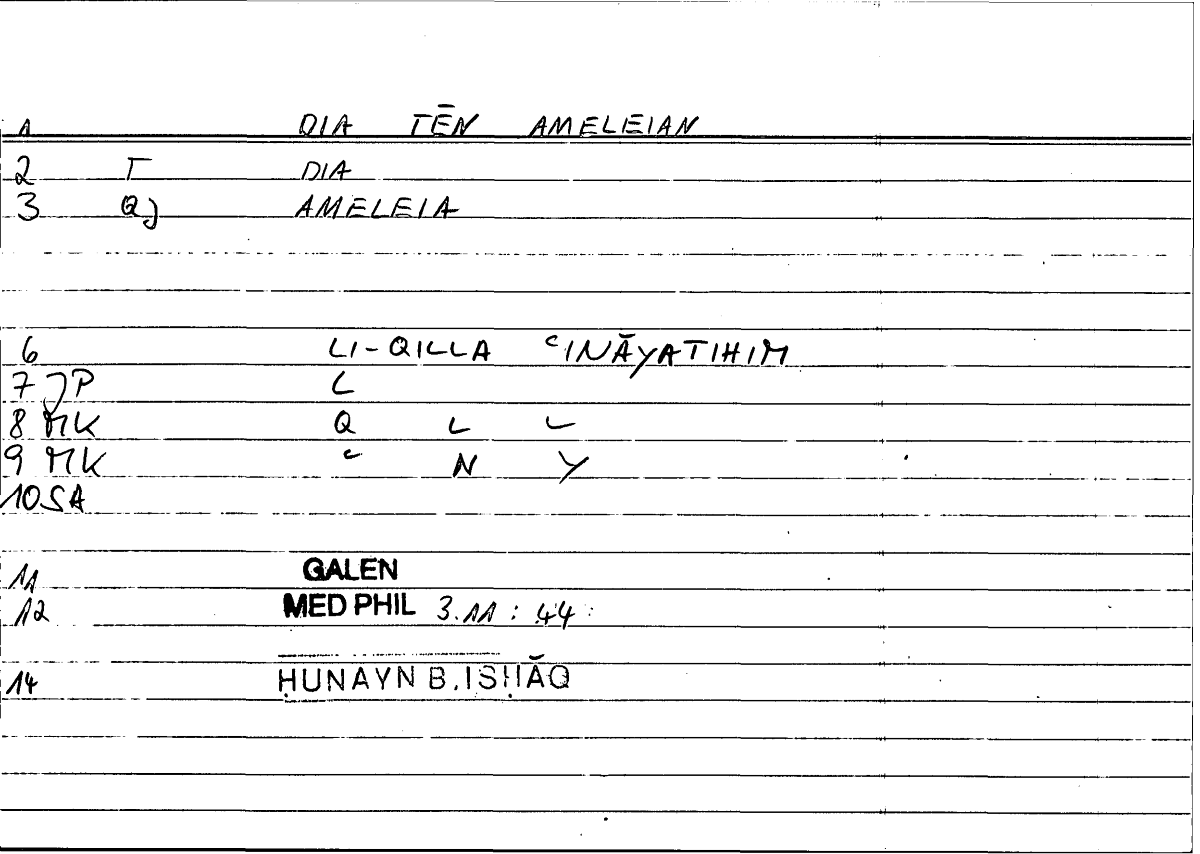 1 DIA TĒN AMELEIAN
2 T DIA
3 QJ AMELEIA
6 LI-QILLA ʿINĀYATIHIM
7 JP L
8 MK Q L L
9 MK ʿ N Y
10 SA
11 GALEN
12 MED PHIL 3.11 : 44
14 ḤUNAYN B. ISḤĀQ